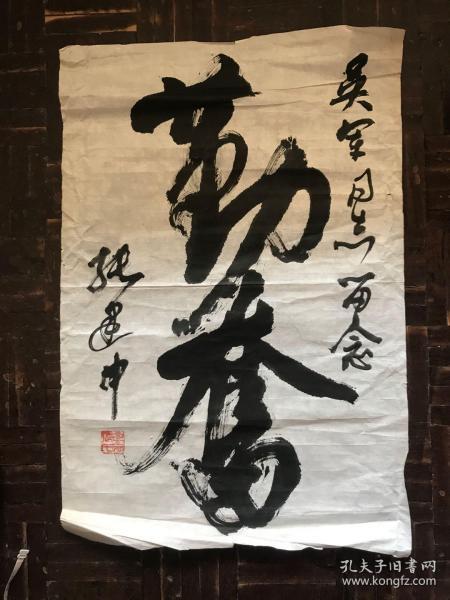 吴军同志留念
勤奋
张建中
孔夫子旧书网
www.kongfz.com